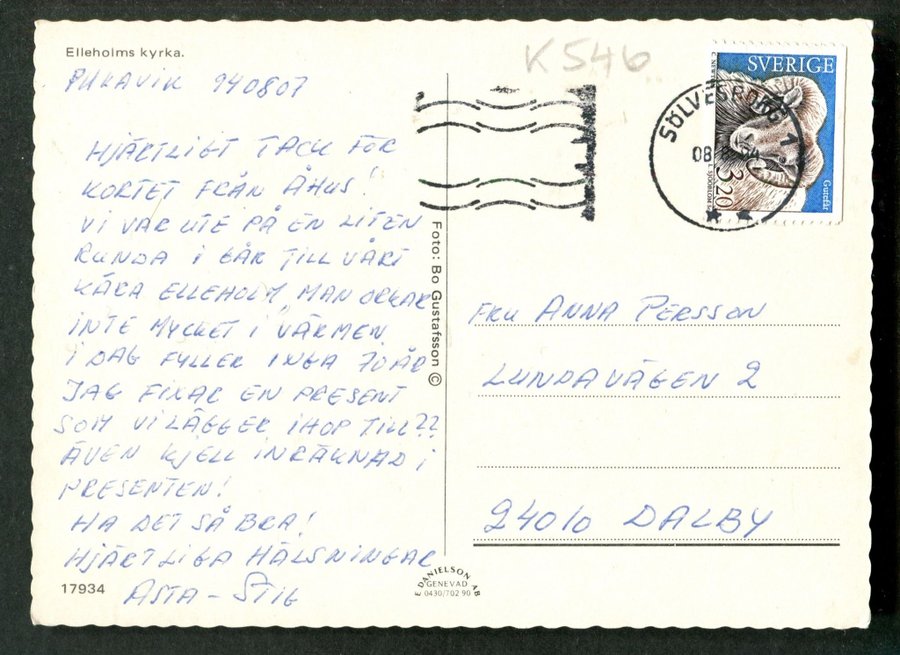 Elleholms kyrka.
PUKAVIK 940807
HJÄRTLIGT TACK FÖR
KORTET FRÅN ÅHUS!
VI VAR UTE PÅ EN LITEN
RUNDA I GÅR TILL VÅRT
KÄRA ELLEHOLM, MAN ORKAR
INTE MYCKET I VÄRMEN.
I DAG FYLLER INGA 70 ÅR
JAG FIXAR EN PRESENT
SOM VI LÄGGER IHOP TILL??
ÄVEN KJELL INRÄKNAD I
PRESENTEN!
HA DET SÅ BRA!
HJÄRTLIGA HÄLSNINGAR
ASTA - STIG
17934
Foto: Bo Gustafsson ©
E. DANIELSON AB
GENEVAD
0430/702 90
K546
SÖLVESBORG 1
08
SVERIGE
3.20
Gutefår
FRU ANNA PERSSON
LUNDAVÄGEN 2
24010 DALBY